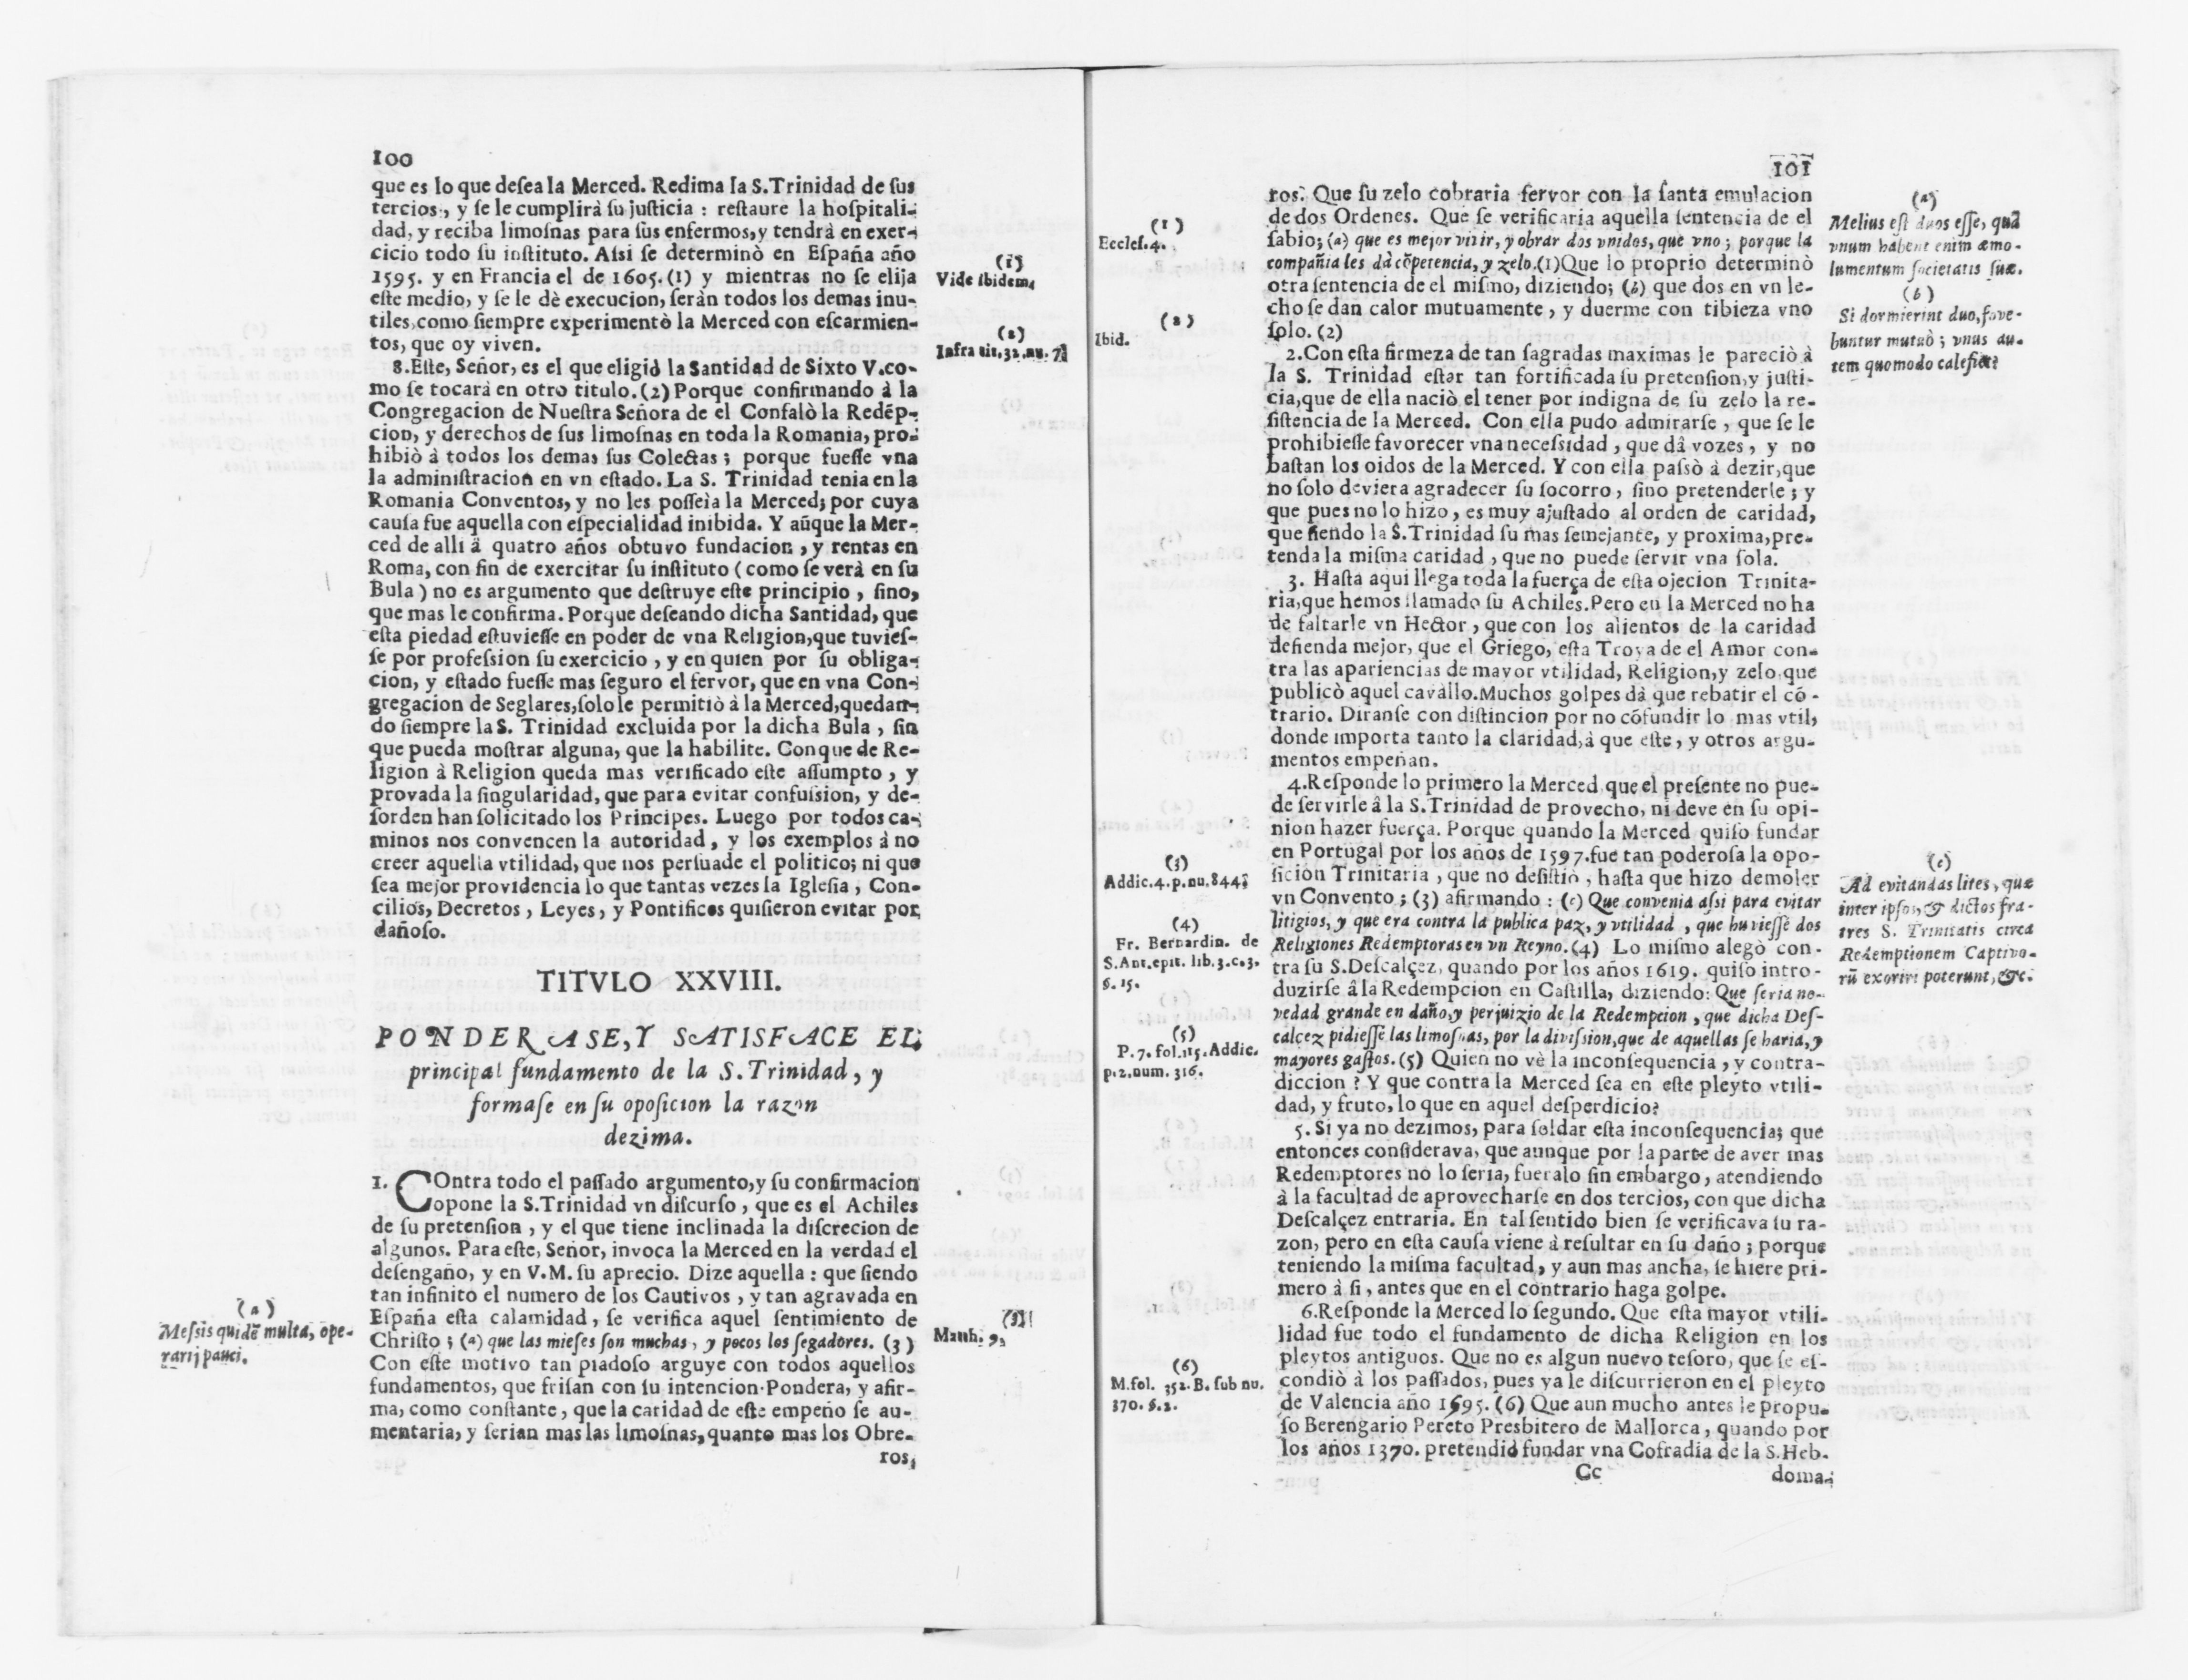 100
que es lo que desea la Merced. Redima la S.Trinidad de sus
tercios, y se le cumplirà su justicia : restaure la hospitali-
dad, y reciba limosnas para sus enfermos, y tendrà en exer-
cicio todo su instituto. Assi se determinò en España año
1595. y en Francia el de 1605. (1) y mientras no se elija
este medio, y se le dè execucion, seràn todos los demas inu-
tiles, como siempre experimentò la Merced con escarmien-
tos, que oy viven.
8. Este, Señor, es el que eligiò la Santidad de Sixto V. co-
mo se tocarà en otro titulo. (2) Porque confirmando à la
Congregacion de Nuestra Señora de el Confalò la Redēp-
cion, y derechos de sus limosnas en toda la Romania, pro-
hibiò à todos los demas sus Colectas ; porque fuesse vna
la administracion en vn estado. La S. Trinidad tenia en la
Romania Conventos, y no les posseìa la Merced; por cuya
causa fue aquella con especialidad inibida. Y aũque la Mer-
ced de alli à quatro años obtuvo fundacion , y rentas en
Roma, con fin de exercitar su instituto ( como se verà en su
Bula ) no es argumento que destruye este principio , sino,
que mas le confirma. Porque deseando dicha Santidad, que
esta piedad estuviesse en poder de vna Religion, que tuvies-
se por profession su exercicio , y en quien por su obliga-
cion, y estado fuesse mas seguro el fervor, que en vna Con-
gregacion de Seglares, solo le permitiò à la Merced, quedan-
do siempre la S. Trinidad excluida por la dicha Bula , sin
que pueda mostrar alguna, que la habilite. Conque de Re-
ligion à Religion queda mas verificado este assumpto , y
provada la singularidad, que para evitar confusion, y de-
sorden han solicitado los Principes. Luego por todos ca-
minos nos convencen la autoridad , y los exemplos à no
creer aquella vtilidad, que nos persuade el politico; ni que
sea mejor providencia lo que tantas vezes la Iglesia , Con-
cilios, Decretos , Leyes, y Pontifices quisieron evitar por
dañoso.
(1)
Vide ibidem.
(2)
Infra tit. 32. nu. 7.
TITVLO XXVIII.
PONDERASE, Y SATISFACE EL
principal fundamento de la S. Trinidad, y
formase en su oposicion la razon
dezima.
1. COntra todo el passado argumento, y su confirmacion
opone la S.Trinidad vn discurso , que es el Achiles
de su pretension , y el que tiene inclinada la discrecion de
algunos. Para este, Señor, invoca la Merced en la verdad el
desengaño, y en V.M. su aprecio. Dize aquella : que siendo
tan infinito el numero de los Cautivos , y tan agravada en
España esta calamidad, se verifica aquel sentimiento de
Christo ; (a) que las mieses son muchas, y pocos los segadores. (3)
Con este motivo tan piadoso arguye con todos aquellos
fundamentos, que frisan con su intencion. Pondera, y afir-
ma, como constante , que la caridad de este empeño se au-
mentaria, y serian mas las limosnas, quanto mas los Obre-
ros,
(a)
Messis quidē multa, ope-
rarij pauci.
(3)
Matth. 9.
101
ros. Que su zelo cobraria fervor con la santa emulacion
de dos Ordenes. Que se verificaria aquella sentencia de el
sabio; (a) que es mejor vivir, y obrar dos vnidos, que vno ; porque la
compañia les dà cōpetencia, y zelo. (1) Que lo proprio determinò
otra sentencia de el mismo, diziendo; (b) que dos en vn le-
cho se dan calor mutuamente , y duerme con tibieza vno
solo. (2)
2. Con esta firmeza de tan sagradas maximas le pareciò à
la S. Trinidad estar tan fortificada su pretension, y justi-
cia, que de ella naciò el tener por indigna de su zelo la re-
sistencia de la Merced. Con ella pudo admirarse , que se le
prohibiesse favorecer vna necessidad , que dà vozes , y no
bastan los oidos de la Merced. Y con ella passò à dezir, que
no solo deviera agradecer su socorro , sino pretenderle ; y
que pues no lo hizo, es muy ajustado al orden de caridad,
que siendo la S.Trinidad su mas semejante, y proxima, pre-
tenda la misma caridad , que no puede servir vna sola.
3. Hasta aqui llega toda la fuerça de esta ojecion Trinita-
ria, que hemos llamado su Achiles. Pero en la Merced no ha
de faltarle vn Hector , que con los alientos de la caridad
defienda mejor, que el Griego, esta Troya de el Amor con-
tra las apariencias de mayor vtilidad, Religion, y zelo, que
publicò aquel cavallo. Muchos golpes dà que rebatir el cō-
trario. Diranse con distincion por no cōfundir lo mas vtil,
donde importa tanto la claridad, à que este, y otros argu-
mentos empeñan.
4. Responde lo primero la Merced, que el presente no pue-
de servirle à la S.Trinidad de provecho, ni deve en su opi-
nion hazer fuerça. Porque quando la Merced quiso fundar
en Portugal por los años de 1597. fue tan poderosa la opo-
sicion Trinitaria , que no desistiò , hasta que hizo demoler
vn Convento ; (3) afirmando : (c) Que convenia assi para evitar
litigios, y que era contra la publica paz, y vtilidad , que huviesse dos
Religiones Redemptoras en vn Reyno. (4) Lo mismo alegò con-
tra su S.Descalçez, quando por los años 1619. quiso intro-
duzirse à la Redempcion en Castilla, diziendo: Que seria no-
vedad grande en daño, y perjuizio de la Redempcion , que dicha Des-
calcez pidiesse las limosnas, por la division, que de aquellas se haria, y
mayores gastos. (5) Quien no vè la inconsequencia , y contra-
diccion ? Y que contra la Merced sea en este pleyto vtili-
dad, y fruto, lo que en aquel desperdicio?
5. Si ya no dezimos, para soldar esta inconsequencia; que
entonces considerava, que aunque por la parte de aver mas
Redemptores no lo seria, fueralo sin embargo, atendiendo
à la facultad de aprovecharse en dos tercios, con que dicha
Descalçez entraria. En tal sentido bien se verificava su ra-
zon, pero en esta causa viene à resultar en su daño ; porque
teniendo la misma facultad, y aun mas ancha, se hiere pri-
mero à si , antes que en el contrario haga golpe.
6. Responde la Merced lo segundo. Que esta mayor vtili-
lidad fue todo el fundamento de dicha Religion en los
pleytos antiguos. Que no es algun nuevo tesoro, que se es-
condiò à los passados, pues ya le discurrieron en el pleyto
de Valencia año 1595. (6) Que aun mucho antes le propu-
so Berengario Pereto Presbitero de Mallorca, quando por
los años 1370. pretendiò fundar vna Cofradia de la S. Heb-
Cc doma-
(1)
Eccles. 4.
(2)
Ibid.
(3)
Addic. 4. p. nu. 844.
(4)
Fr. Bernardin. de
S. Ant. epit. lib. 3. c. 3.
§. 15.
(5)
P. 7. fol. 115. Addic.
p. 2. num. 316.
(6)
M. fol. 352. B. sub nu.
370. §. 2.
(a)
Melius est duos esse, quā
vnum habent enim æmo-
lumentum societatis suæ.
(b)
Si dormierint duo, fove-
buntur mutuò ; vnus au-
tem quomodo calefiet?
(c)
Ad evitandas lites, quæ
inter ipsos, & dictos fra-
tres S. Trinitatis circa
Redemptionem Captivo-
rū exoriri poterunt, &c.